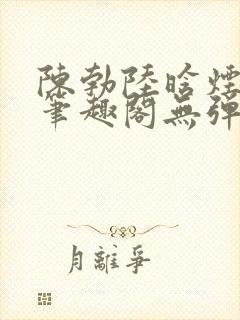 陳勃陸晗煙
筆趣閣無彈
月離爭